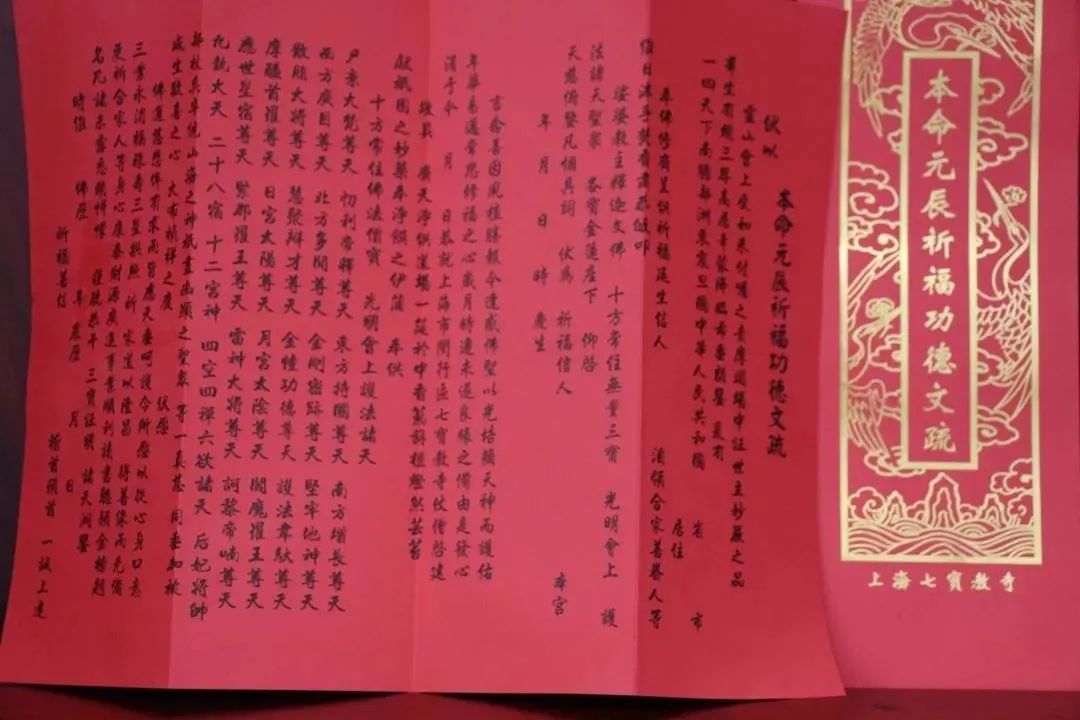 本命元辰祈福功德文疏
伏以
靈山會上受如來付囑之貴摩竭場中証世主妙嚴之品
羣生有賴三界高居幸蒙降臨希垂朗鑒 爰有
一四天下南贍部洲東震旦國中華人民共和國 省 市
居住
奉佛修齋呈供祈福延生信人 洎領合家善眷人等
維日沐手焚香肅恭皈叩
娑婆教主釋迦文佛 十方常住無量三寶 光明會上 護
法諸天聖衆 各寶金蓮座下 仰啓
天慈俯鑒凡悃具詞 伏為 祈福信人
年 月 日 時 慶生 本宮
言念善因夙植勝報今逢感佛聖以光培賴天神而護佑
年華易邁常思修福之心歲月時遷未遂良緣之備由是發心
涓于今 月 日恭就上海市閔行區七寶教寺仗僧啓建
敬具 齋天淨供道場一筵於中香薰 檀燈然芸苔
獻祇園之妙藥奉淨饌之伊蒲 奉供
十方常住佛法僧寶 光明會上護法諸天
尸棄大梵尊天 忉利帝釋尊天 東方持國尊天 南方增長尊天
西方廣目尊天 北方多聞尊天 金剛密跡尊天 堅牢地神尊天
散脂大將尊天 慧聚辯才尊天 金幢功德尊天 護法韋馱尊天
摩醯首羅尊天 日宮太陽尊天 月宮太陰尊天 閻魔羅王尊天
應世星宿尊天 緊那羅王尊天 雷神大將尊天 訶黎帝喃尊天
九執大天 二十八宿 十二宮神 四空四禪六欲諸天 后妃將帥
部校兵卒統山海之神祇盡幽顯之聖衆 等一真甚 同垂加被
咸生歡喜之心 大布禎祥之慶 伏愿
佛運慈悲俾有求而皆應天垂呵護令所愿以從心身口意
三業永消福祿壽三星拱照 祈 家道以隆昌 得善緣而克備
更祈合家人等身心康泰財源廣進事業順利讀書聰穎金榜題
名 三寶証明 諸天洞鑒
時維 佛歷 年農歷 月 日
祈福善信 稽首頓首 一誠上達
本命元辰祈福功德文疏
上海七寶教寺